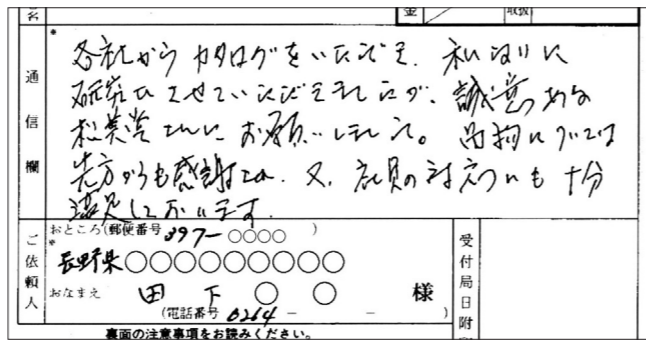 名
金
取扱
通信欄
各社からカタログをいただき、私なりに
研究させていただきましたが、誠意ある
松美堂さんにお願いしました。品物については
先方からも感謝され、又、社員の対応にも十分
満足しております。
ご依頼人
おところ(郵便番号 397-○○○○ )
長野県○○○○○○○○○
おなまえ 田下○○ 様
(電話番号 0264 - - )
受付局日附
裏面の注意事項をお読みください。